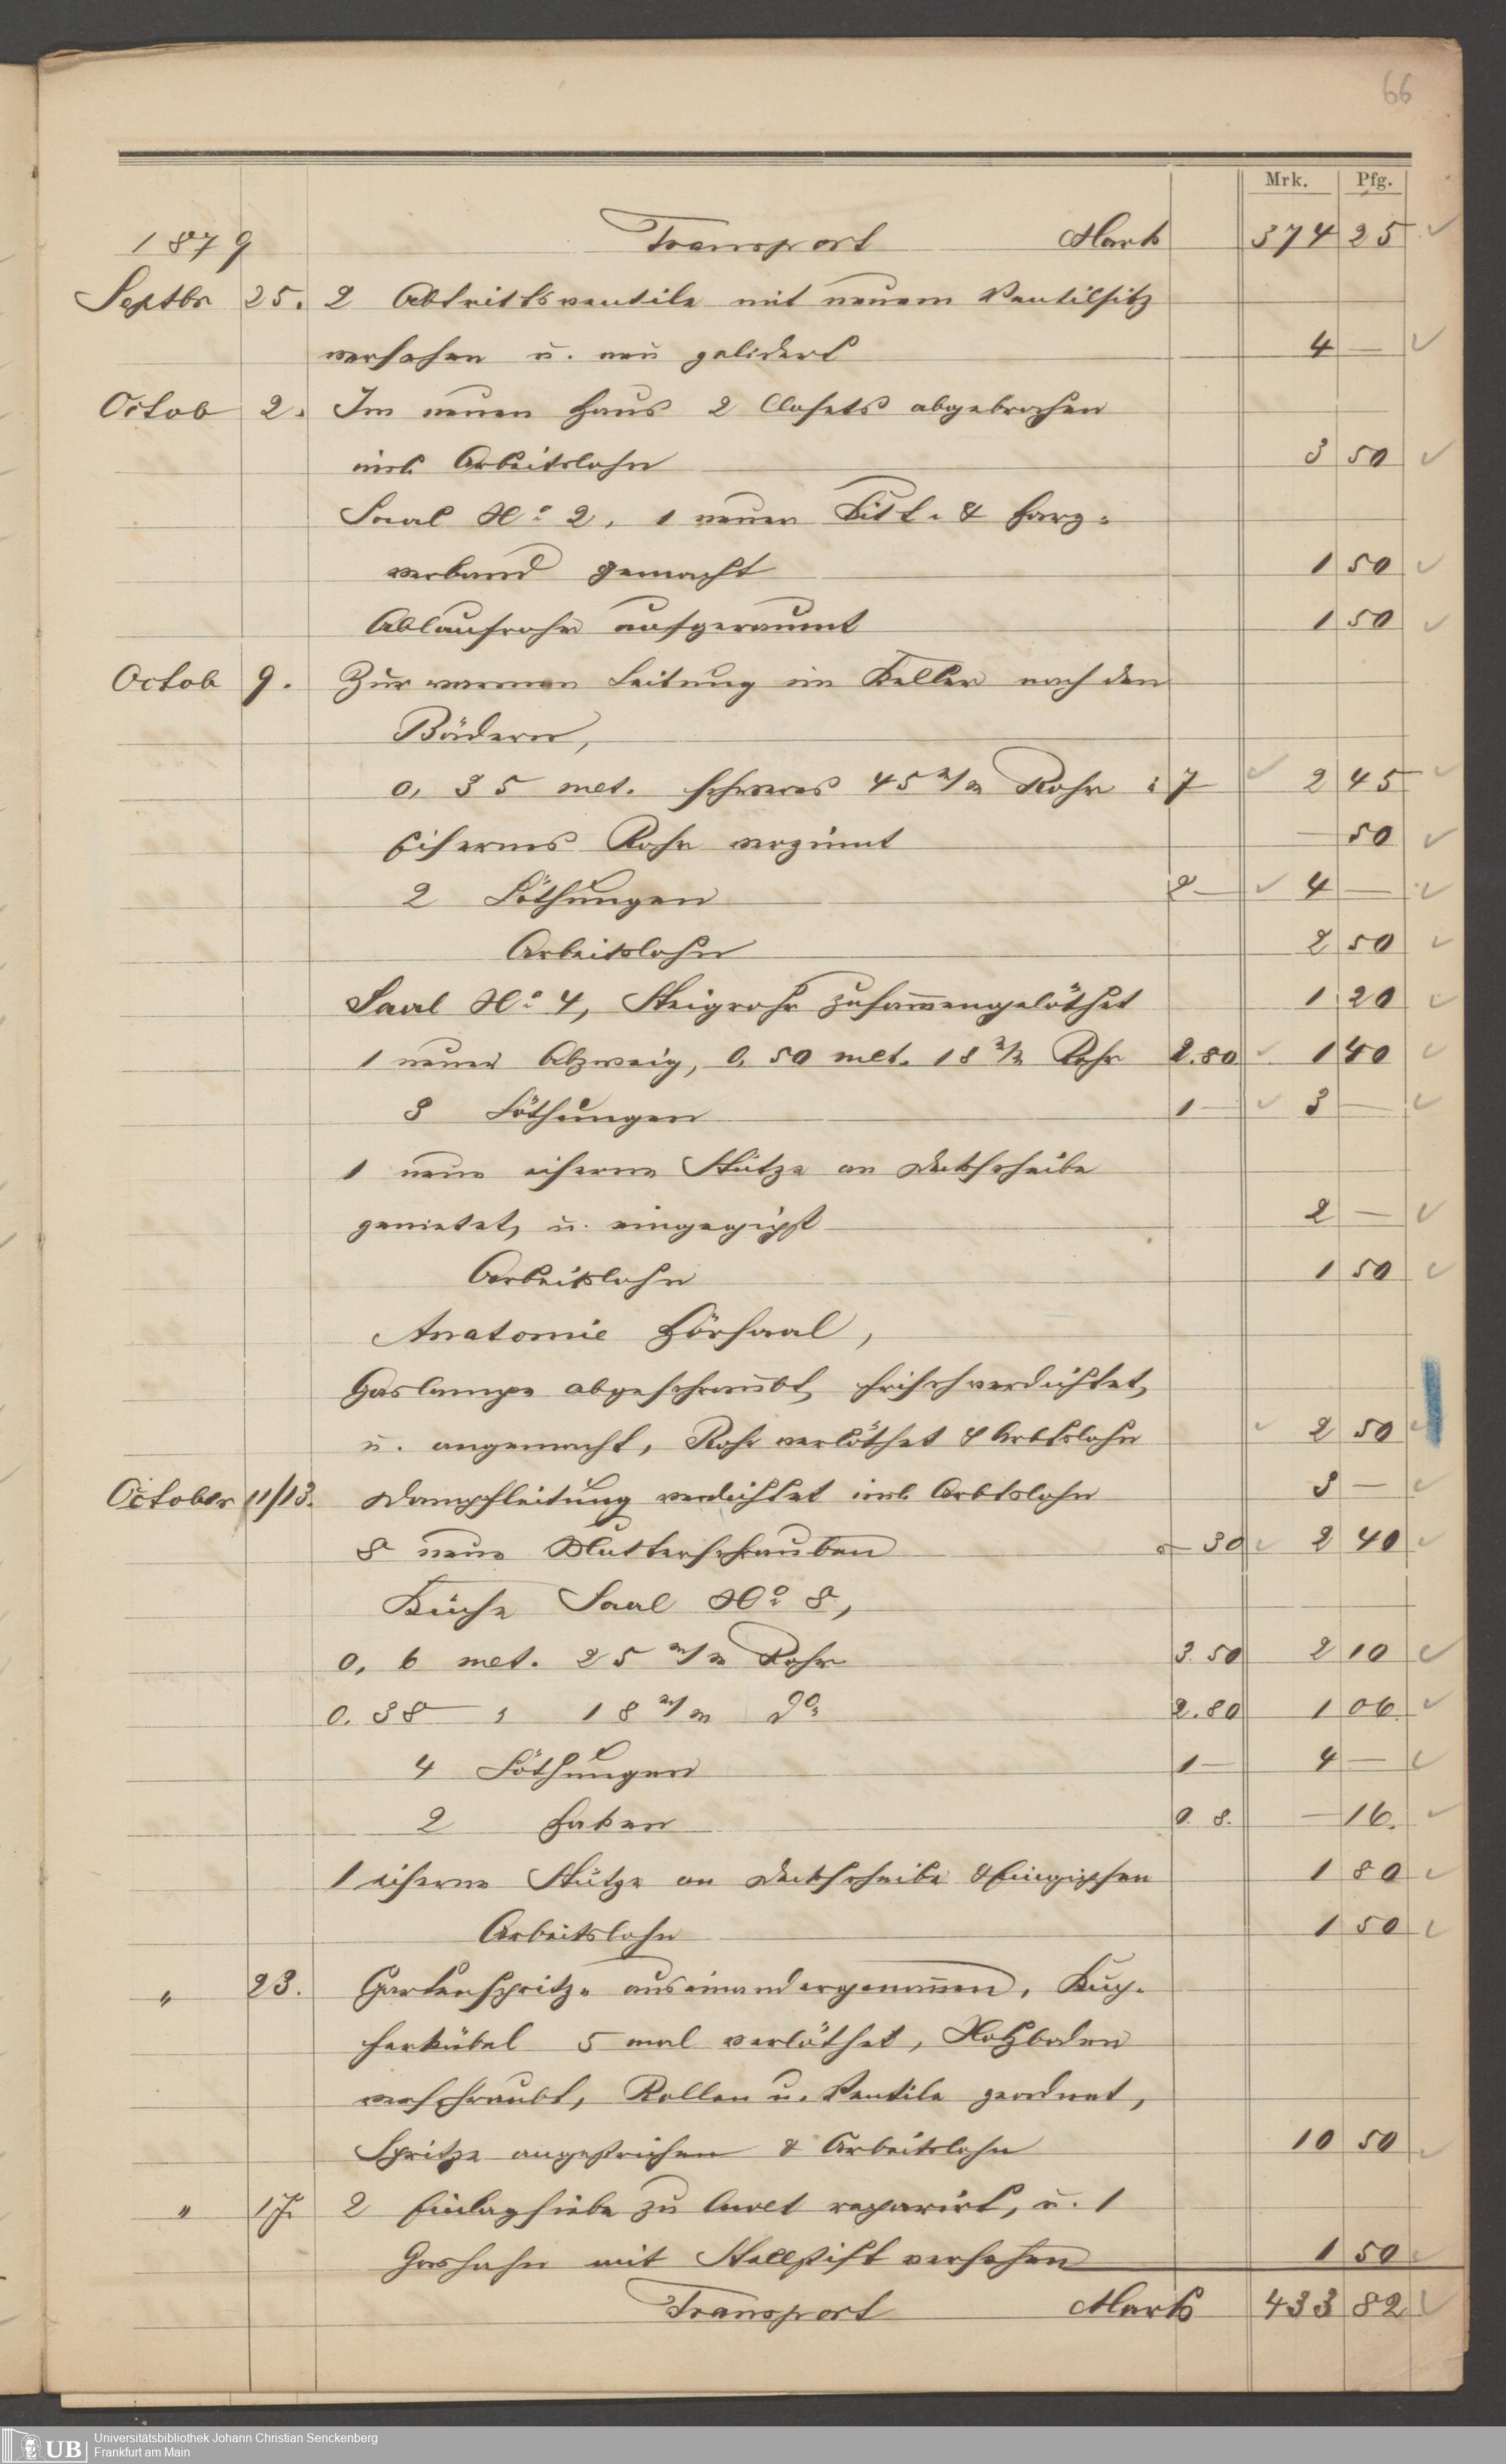 66
Mrk. Pfg.
1879 Transport Mark 374 25
Septbr 25. 2 Abtrittsventile mit neuem Ventilsitz
versehen u. neu gelidert 4 —
Octob 2. Im neuen Haus 2 Closets abgebrochen
incl. Arbeitslohn 3 50
Saal No. 2, 1 neuer Kitt- & Harz-
verband gemacht 1 50
Ablaufrohr ausgeraumt 1 50
Octob 9. Zur warmen Leitung im Keller nach den
Bädern,
0,35 met. schweres 45 m/m Rohr 7 — 2 45
Eisernes Rohr verzinnt — 50
2 Löthungen 2 — 4 —
Arbeitslohn 2 50
Saal No. 4, Steigrohr zusammengelöthet 1 20
1 neuer Abzweig, 0,50 met. 18 m/m Rohr 2.80 1 40
3 Löthungen 1 — 3 —
1 neue eiserne Stütze an Deckscheibe
genietet, u. eingegipst 2 —
Arbeitslohn 1 50
Anatomie Hörsaal,
Gaslampe abgeschraubt, frisch verdichtet,
u. angemacht, Rohr verlöthet & Arbtslohn 2 50
October 11/13. Dampfleitung verdichtet incl. Arbtslohn 3 —
8 neue Mutterschrauben — 30 2 40
Küche Saal No. 8,
0,6 met. 25 m/m Rohr 3.50 2 10
0.38 " 18 m/m do. 2.80 1 06
4 Löthungen 1 — 4 —
2 Haken 0.8. — 16.
1 eiserne Stütze an Deckscheibe & Eingipsen 1 80
Arbeitslohn 1 50
" 23. Gartenspritze auseinandergenommen, Kup-
ferkübel 5 mal verlöthet, Holzboden
verschraubt, Rollen u. Ventile geordnet,
Spritze angestrichen & Arbeitslohn 10 50
" 17. 2 Einlagsiebe zu reparirt, u. 1
Gashahn mit Stellstift versehen 1 50
Transport Mark 433 82
UB Universitätsbibliothek Johann Christian Senckenberg
Frankfurt am Main